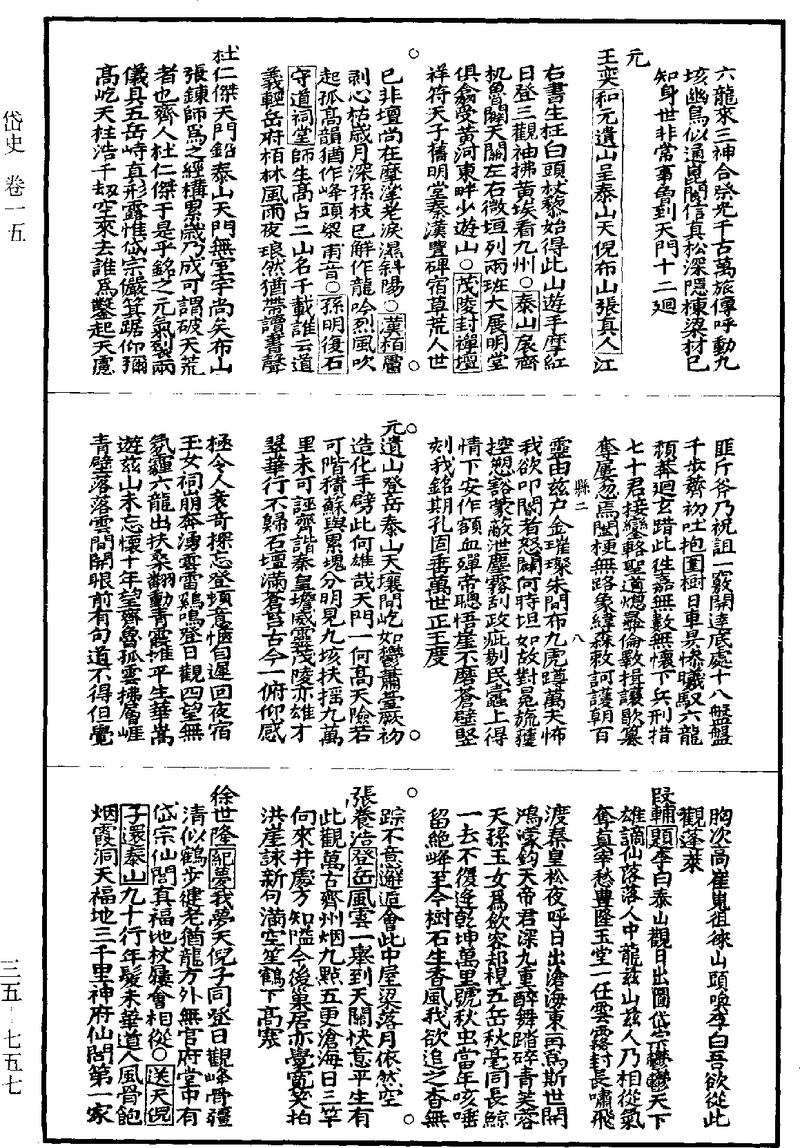 岱史 卷一五
六龍來三神合祭光千古萬旅傳呼動九
垓幽鳥似通鬼閣信真松深隱棟梁材已
知身世非常事魯到天門十二廻
元
王奕和元遺山呈泰山天倪布山張真人江
右書生枉白頭杖藜始得此山遊手摩紅
日登三觀袖拂黄埃看九州○泰山扆齊
机魯闢天關左右微垣列兩班大展明堂
俱翕受黄河東畔少遊山○茂陵封禪壇
祥符天子舊明堂秦漢豐碑宿草荒人世
已非壇尚在摩挲老淚濕斜陽○漢栢層
剥心枯歲月深孫枝已解作龍吟烈風吹
起孤高韻猶作峰頭梁甫音○孫明復石
守道祠堂師生高占二山名千載誰云道
義輕岳府栢林風雨夜琅然猶帶讀書聲
杜仁傑天門銘泰山天門無室宇尚矣布山
張鍊師為之經構累歲乃成可謂破天荒
者也齊人杜仁傑于是乎銘之元氣裂兩
儀具五岳峙真形露惟岱宗儼箕踞仰彌
高屹天柱浩千刼空來去誰為鑿起天慮
匪斤斧乃祝詛一竅開達底處十八盤盤
千步薺初吐抱圍樹日車晃慘曦馭六龍
頹莽廻玄踏此徃嘉無數無懷下兵刑措
七十君接鑾輅聖道熄彞倫斁揖讓歇纂
奪屢忽焉閽梗無路象緯森敕訶護朝百
靈由兹户金璀璨朱間布九虎蹲萬夫怖
我欲叩閽者怒闢何時坦如故對冕旒穫
控愬豁蒙蔽泄塵霧刮政疵剔民蠧上得
情下安作額血殫帝聰悟崖不磨蒼壁堅
刻我銘期孔固垂萬世正王度
縣二
八
元遺山登岳泰山天壤間屹如鬱蕭臺厥初
造化手劈此何雄哉天門一何高天險若
可階積蘇與累塊分明見九垓扶摇九萬
里未可誣齊諧秦皇憺威靈茂陵亦雄才
翠華行不歸石壇滿蒼苔古今一俯仰感
極令人哀奇探忘登頓意愜自遲回夜宿
玉女祠崩奔湧雲雷鷄鳴登日觀四望無
氛霾六龍出扶桑翻動青霞堆平生華嵩
遊兹山未忘懷十年望齊魯孤雲拂層崖
青壁落落雲間開眼前有句道不得但覺
胸次高崔嵬徂徠山頭喚李白吾欲從此
觀蓬萊
段輔題李白泰山觀日出圖岱宗鬱鬱天下
雄謫仙落落人中龍兹山兹人乃相從氣
奪真宰愁豊隆玉堂一任雲霧封長嘯飛
渡秦皇松夜呼日出滄海東再為斯世開
鴻濛鈞天帝君深九重醉舞踏碎青芙蓉
天孫玉女為斂容却視五岳秋毫同長鯨
一去不復逢乾坤萬里號秋虫當年咳唾
留絶峰至今樹石生香風我欲追之杳無
踪不意邂逅會此中屋梁落月依然空
張養浩登岳風雲一舉到天關快意平生有
此觀萬古齊州烟九點五更滄海日三竿
向來井處方知隘今後巢居亦覺寬笑拍
洪崖詠新句滿空笙鶴下高寒
徐世隆紀夢我夢天倪子同登日觀峰骨疆
清似鶴步健老猶龍方外無官府堂中有
岱宗仙閣真福地杖屨會相從○送天倪
子還泰山九十行年髮未華道人風骨飽
烟霞洞天福地三千里神府仙閣第一家
三五－七五七